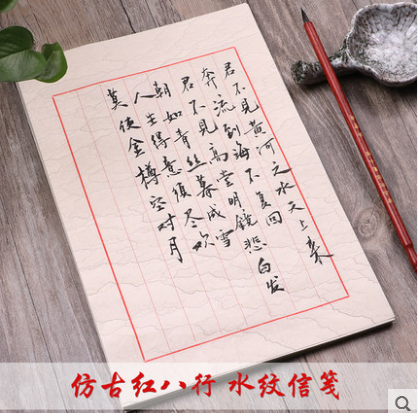 君不見黄河之水天上来
奔流到海不复回
君不見高堂明镜悲白发
朝如青丝暮成雪
人生得意须尽欢
莫使金樽空对月
仿古红八行 水纹信笺